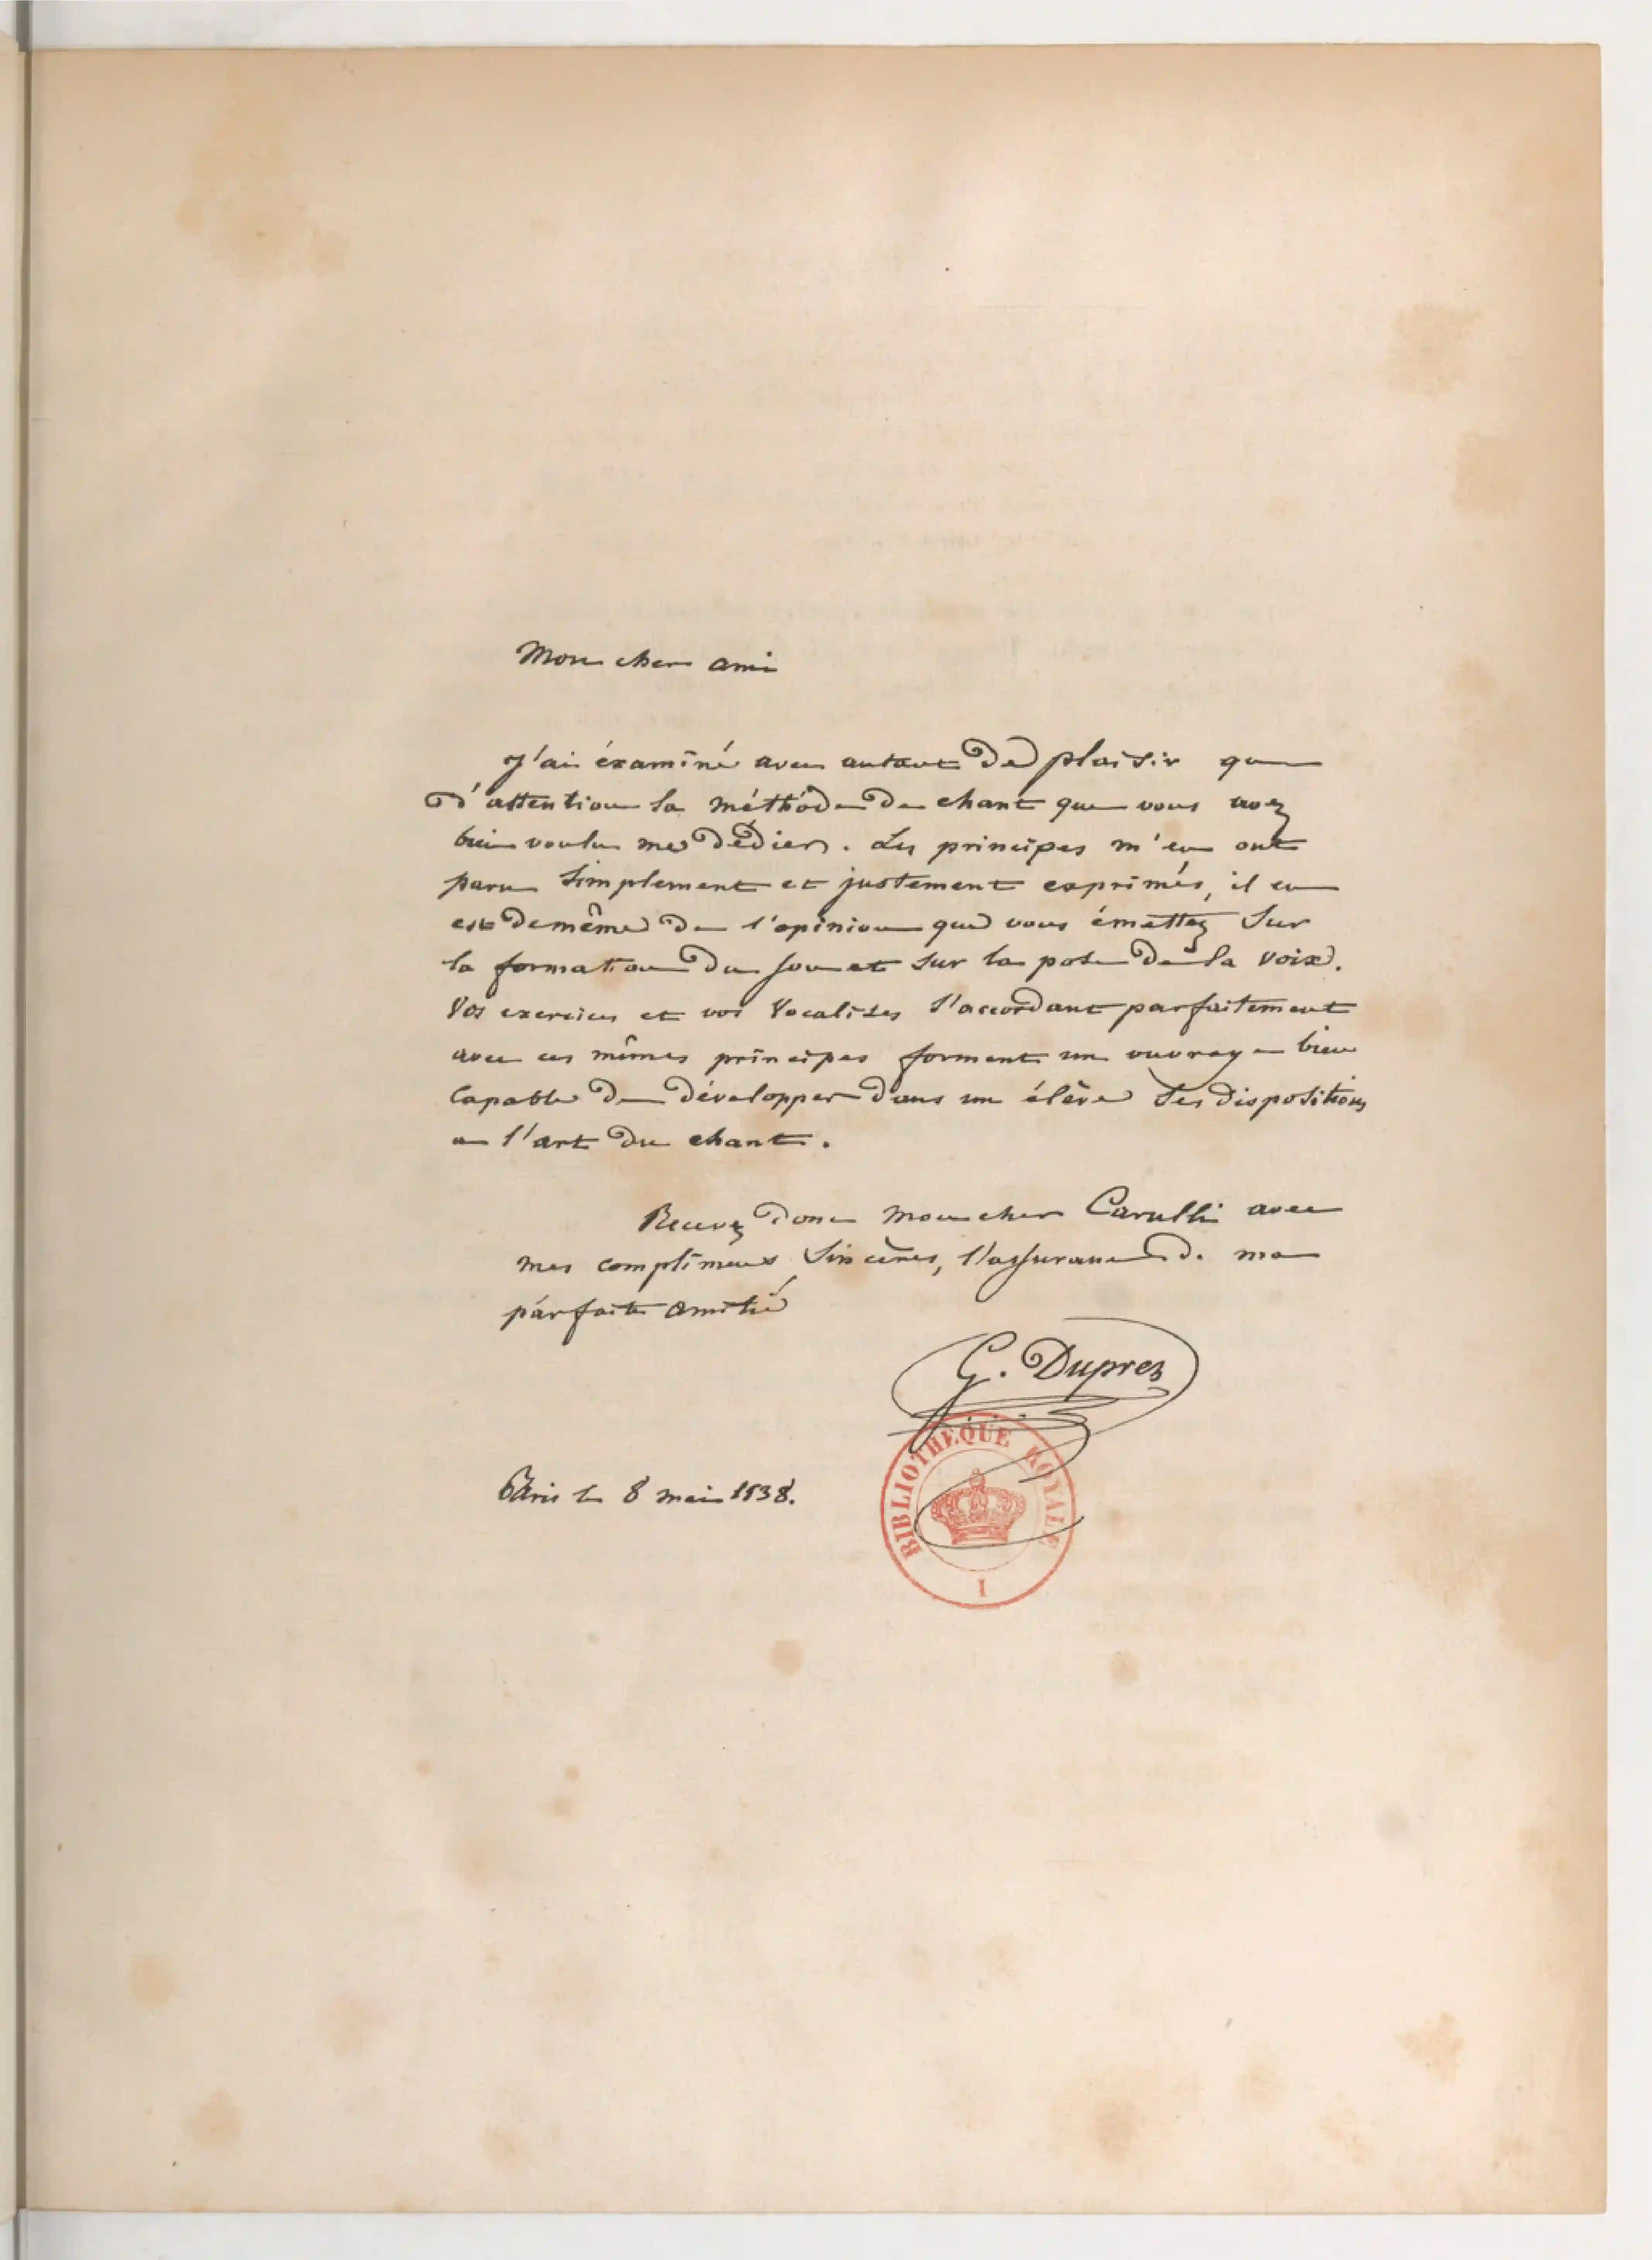 Mon cher ami
J'ai éxaminé avec autant de plaisir que
d'attention la méthôde de chant que vous avez
bien voulu me dédier. Les principes m'en ont
paru simplement et justement exprimés, il en
est de même de l'opinion que vous émettez sur
la formation du son et sur la pose de la voix.
Vos exercices et vos vocalises s'accordant parfaitement
avec ces mêmes principes forment un ouvrage bien
capable de développer dans un élève ses dispositions
a l'art du chant.
Recevez donc mon cher Carulli avec
mes complimens sincères, l'assurance de ma
parfaite amitié
G. Duprez
BIBLIOTHÈQUE ROYALE
I
Paris le 8 mai 1838.